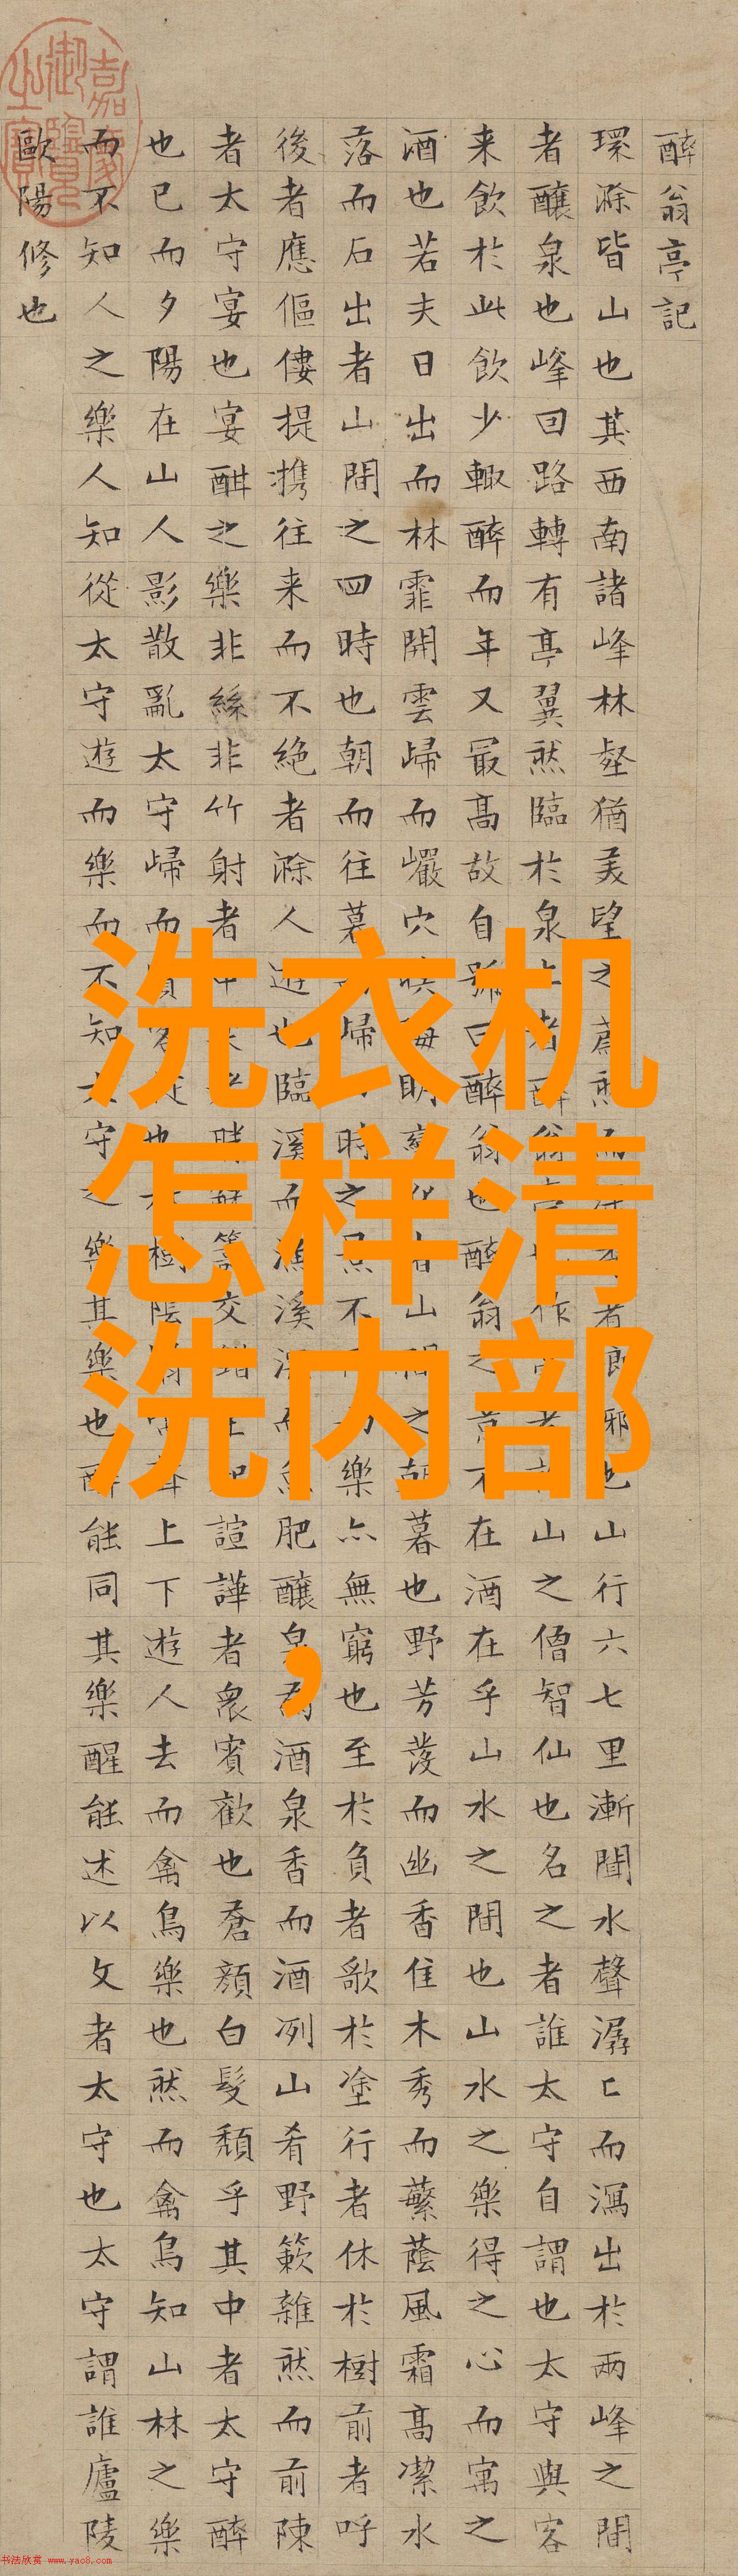 醉翁亭記
環滁皆山也其西南諸峰林壑猶美望之蔚然而者郎邪也山行六七里漸聞水聲潺〻而瀉出於兩峰之間
者釀泉也峰回路轉有亭翼然臨於泉上者醉翁亭也作山之僧智仙也名之者誰太守自謂也太守與客
来飲於此飲少輒醉而年又最高故自號曰醉翁也醉翁之意不在酒在乎山水之間也山水之樂得之心而寓之
酒也若夫日出而林霏開雲歸而巖穴暝晦明者山間之朝暮也野芳發而幽香佳木秀而蘩蔭風霜高潔水
落而石出者山間之四時也朝而往暮歸時之景不樂亦無窮也至於負者歌於塗行者休於樹前者呼
後者應傴僂提攜往来而不絶者滁人遊也臨溪而漁溪深而魚肥釀泉為酒泉香而酒冽山肴野簌雜然而前陳
者太守宴也宴酣之樂非絲非竹射者中勝籌交錯諠譁者衆賓歡也蒼顏白髮頹乎其中者太守醉
也已而夕陽在山人影散亂太守歸而賓客從也樹陰聲上下遊人去而禽鳥樂也然而禽鳥知山林之樂
而不知人之樂人知從太守遊而樂而不知太守之樂其樂也醉能同其樂醒能述以文者太守也太守謂誰廬陵
歐陽修也
洗衣机
怎样清
洗内部
,
书法欣赏 www.yac8.com